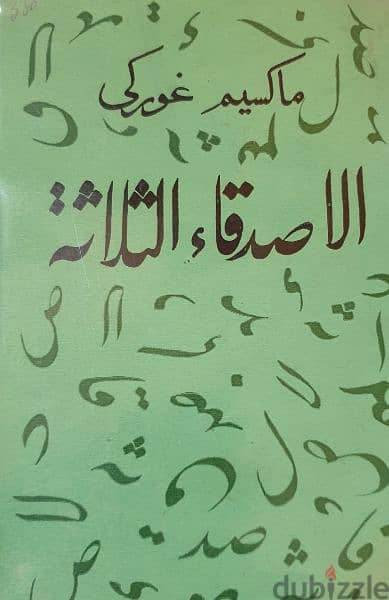 ماكسيم غوركي
الأصدقاء الثلاثة
dubizzle